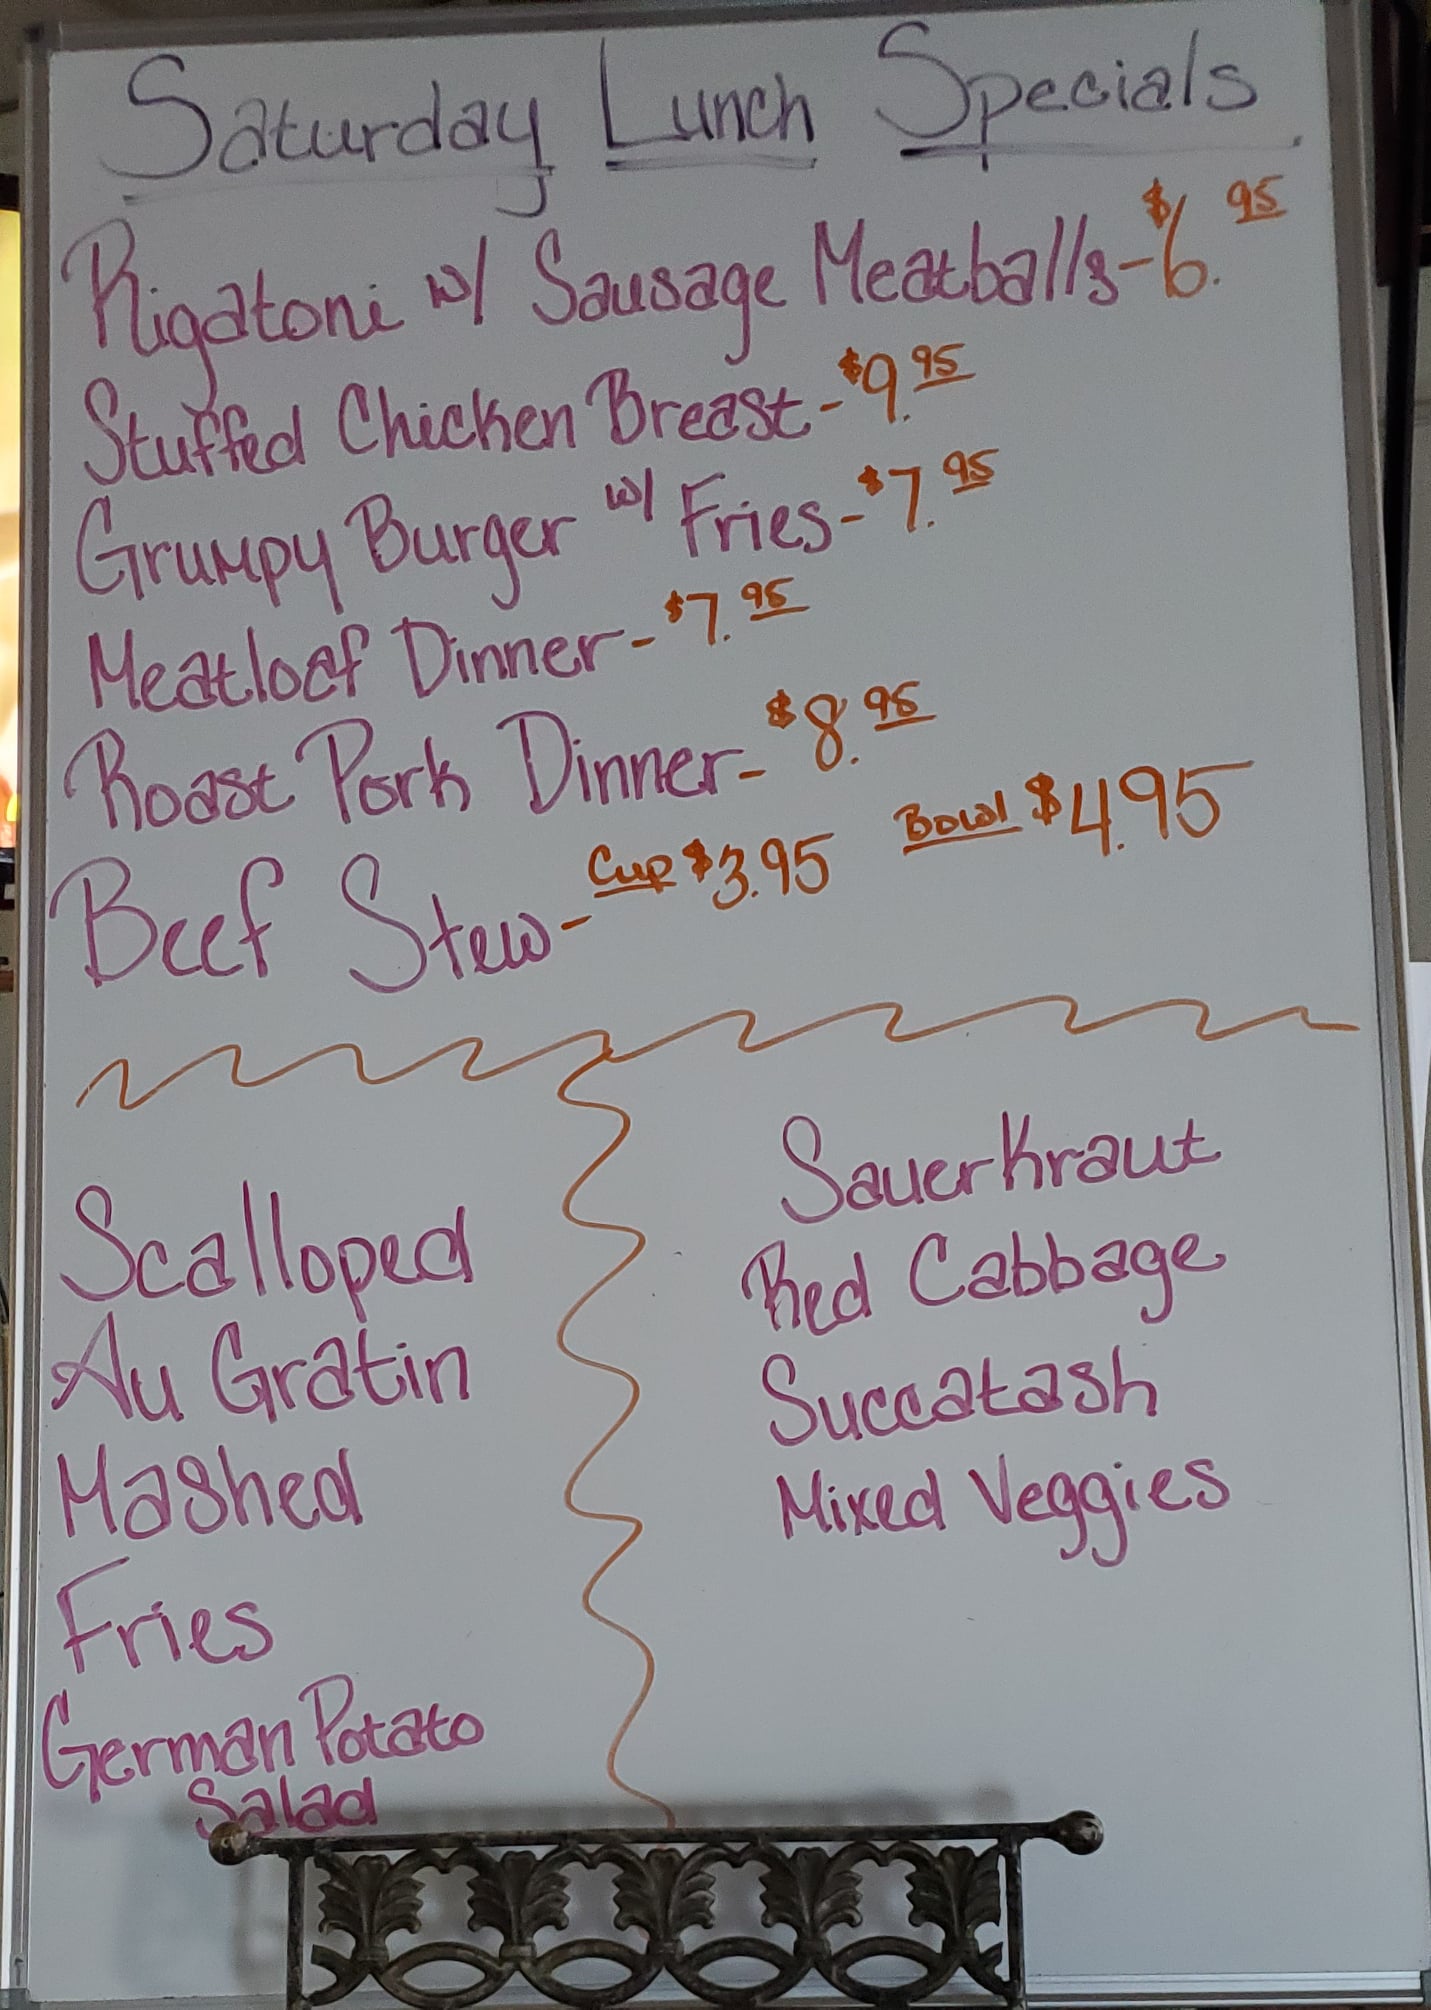 Saturday Lunch Specials
Rigatoni w/ Sausage Meatballs-$6.95
Stuffed Chicken Breast-$9.95
Grumpy Burger w/ Fries-$7.95
Meatloaf Dinner-$7.95
Roast Pork Dinner-$8.95
Beef Stew-Cup $3.95 Bowl $4.95
Scalloped
Au Gratin
Mashed
Fries
German Potato
Salad
SauerKraut
Red Cabbage
Succatash
Mixed Veggies